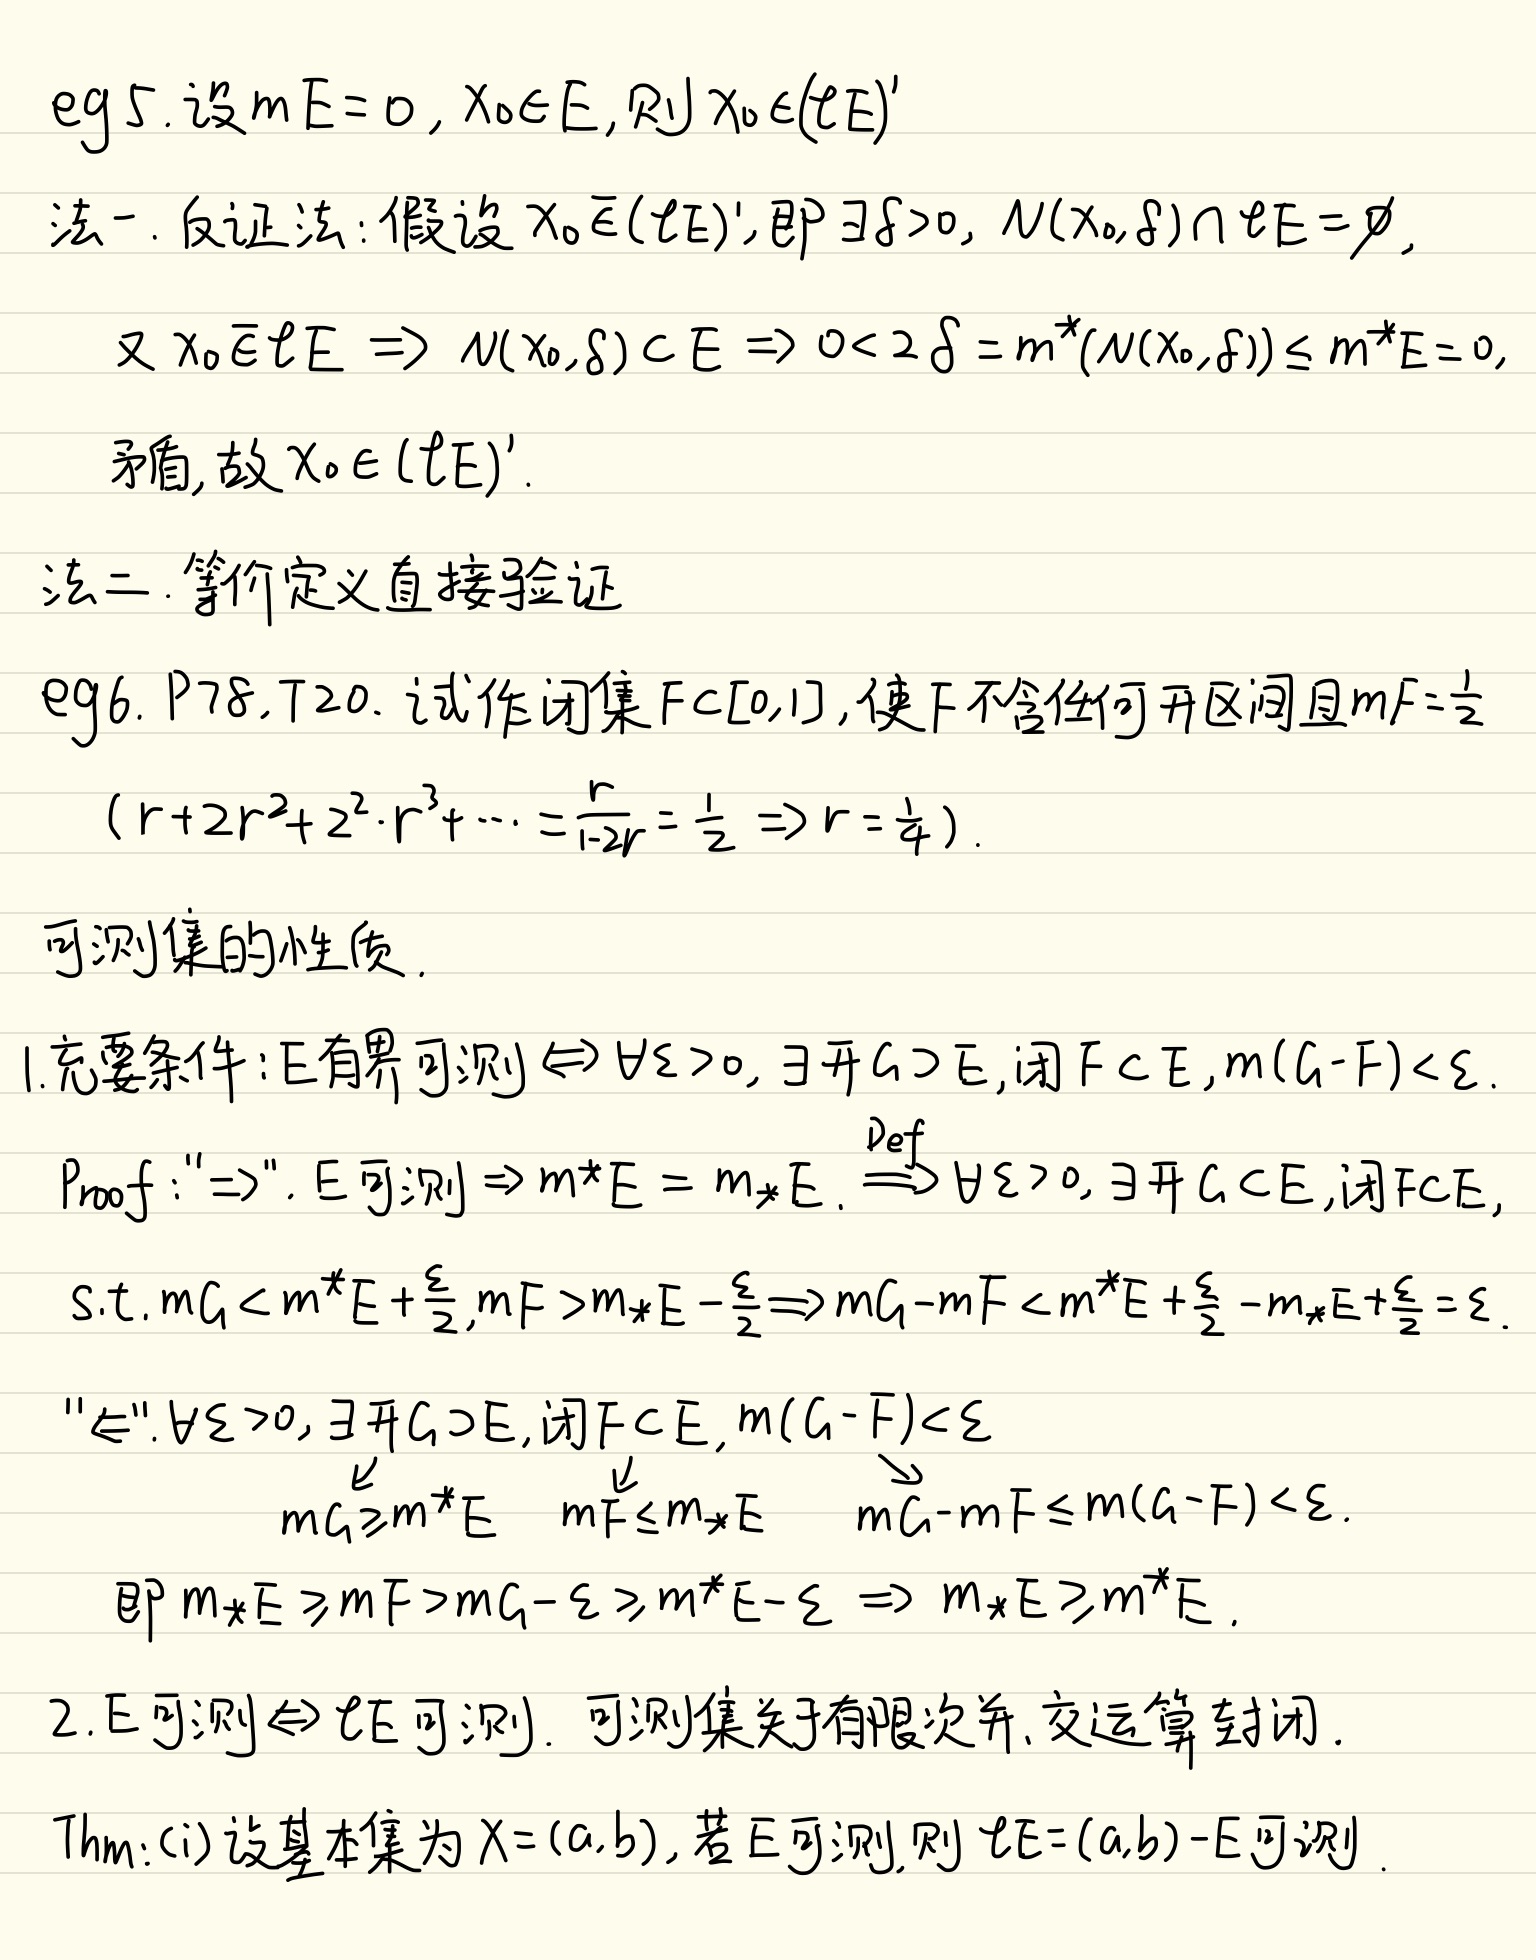 eg5.设mE=0,x₀∈E,则x₀∈(ℓE)'
法一.反证法:假设x₀∈̄(ℓE)',即∃δ>0,N(x₀,δ)∩ℓE=∅,
又x₀∈̄ℓE⇒N(x₀,δ)⊂E⇒0<2δ=m*(N(x₀,δ))≤m*E=0,
矛盾,故x₀∈(ℓE)'.
法二.等价定义直接验证
eg6.P78,T20.试作闭集F⊂[0,1],使F不含任何开区间且mF=1/2
(r+2r²+2²·r³+⋯=r/(1-2r)=1/2⇒r=1/4).
可测集的性质.
1.充要条件:E有界可测⇔∀ε>0,∃开G⊃E,闭F⊂E,m(G-F)<ε.
Proof:"⇒".E可测⇒m*E=m⁎E.⇒(Def)∀ε>0,∃开G⊂E,闭F⊂E,
s.t.mG<m*E+ε/2,mF>m⁎E-ε/2⇒mG-mF<m*E+ε/2-m⁎E+ε/2=ε.
"⇐".∀ε>0,∃开G⊃E,闭F⊂E,m(G-F)<ε
↙ ↓ ↘
mG≥m*E mF≤m⁎E mG-mF≤m(G-F)<ε.
即m⁎E≥mF>mG-ε≥m*E-ε⇒m⁎E≥m*E.
2.E可测⇔ℓE可测.可测集关于有限次并、交运算封闭.
Thm:(i)设基本集为X=(a,b),若E可测,则ℓE=(a,b)-E可测.